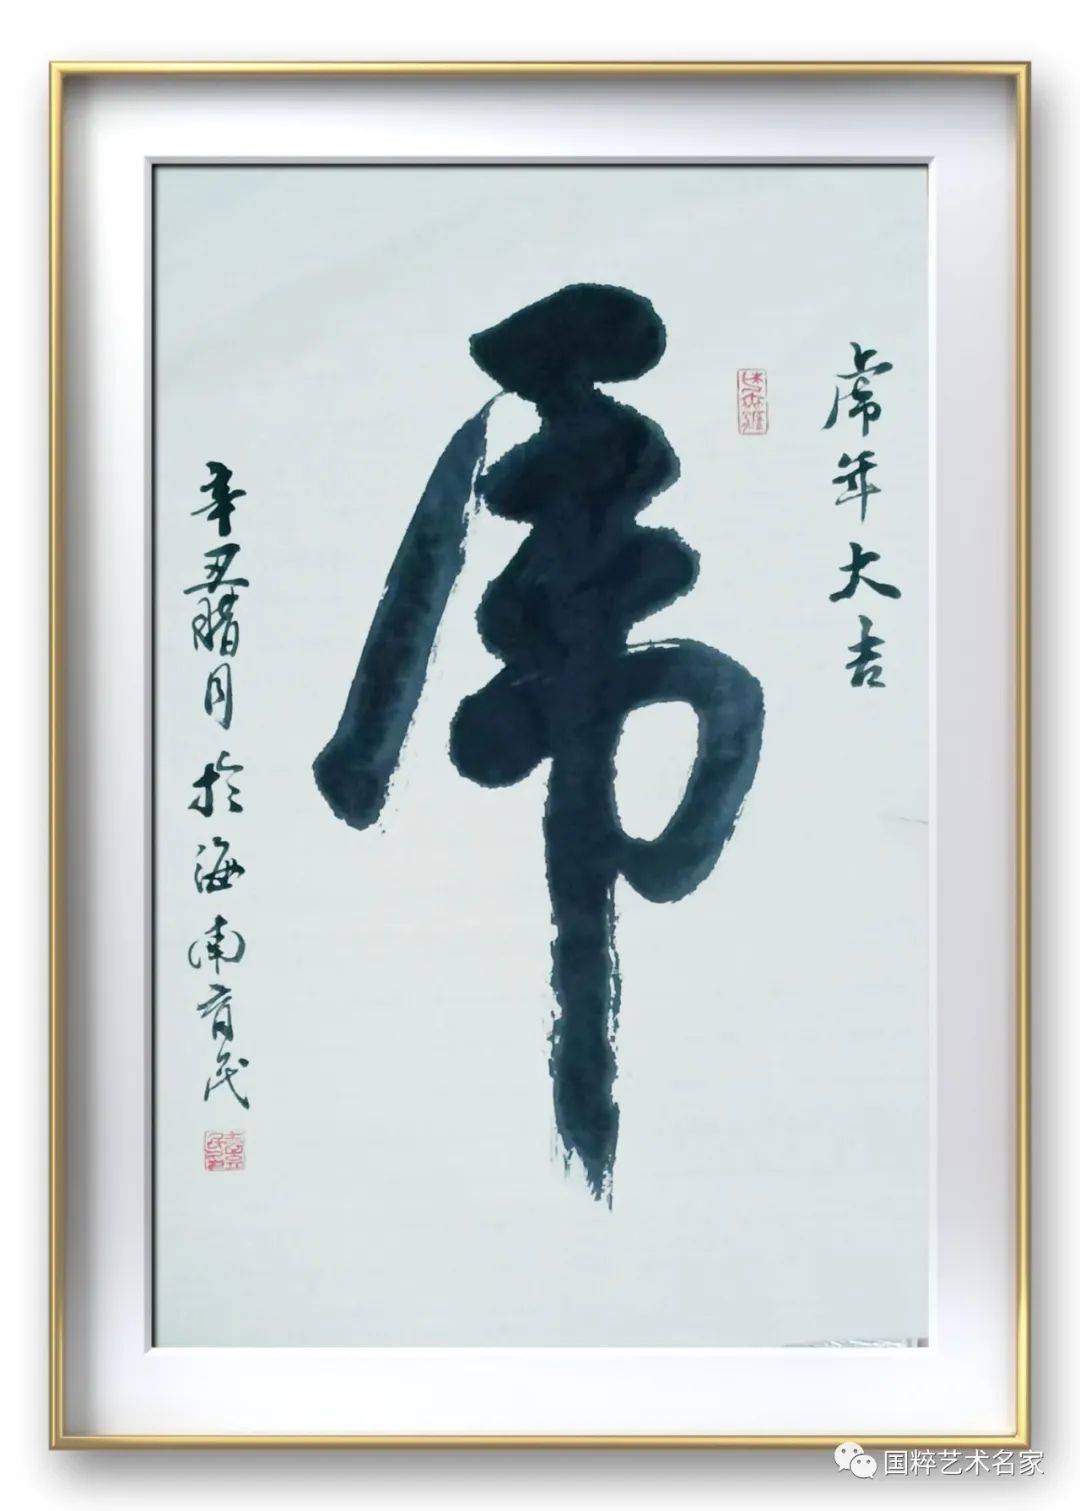 虎年大吉
虎
辛丑腊月於海南育民
国粹艺术名家